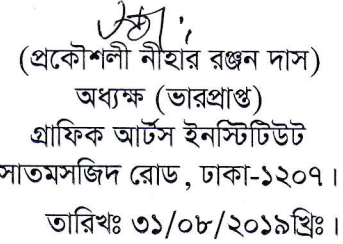 (প্রকৌশলী নীহার রঞ্জন দাস)
অধ্যক্ষ (ভারপ্রাপ্ত)
গ্রাফিক আর্টস ইনস্টিটিউট
সাতমসজিদ রোড, ঢাকা-১২০৭।
তারিখঃ ৩১/০৮/২০১৯খ্রিঃ।